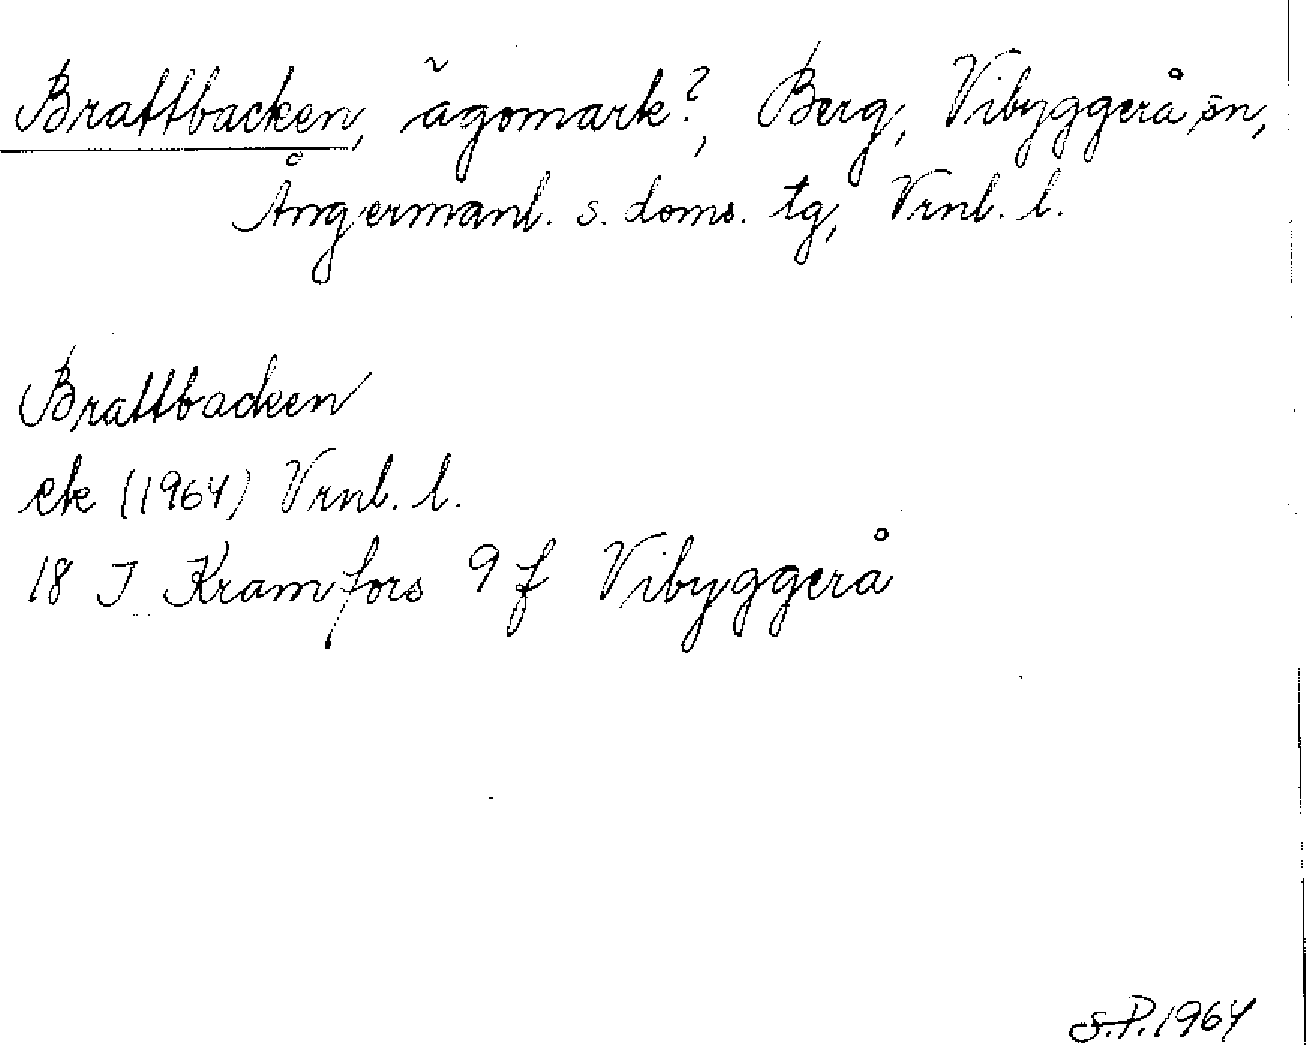 Brattbacken, ägomark?, Berg, Vibyggerå sn,
Ångermanl. s. doms. tg, Vrnl. l.
Brattbacken
ek (1964) Vrnl. l.
18 J Kramfors 9 f Vibyggerå
S.P. 1964